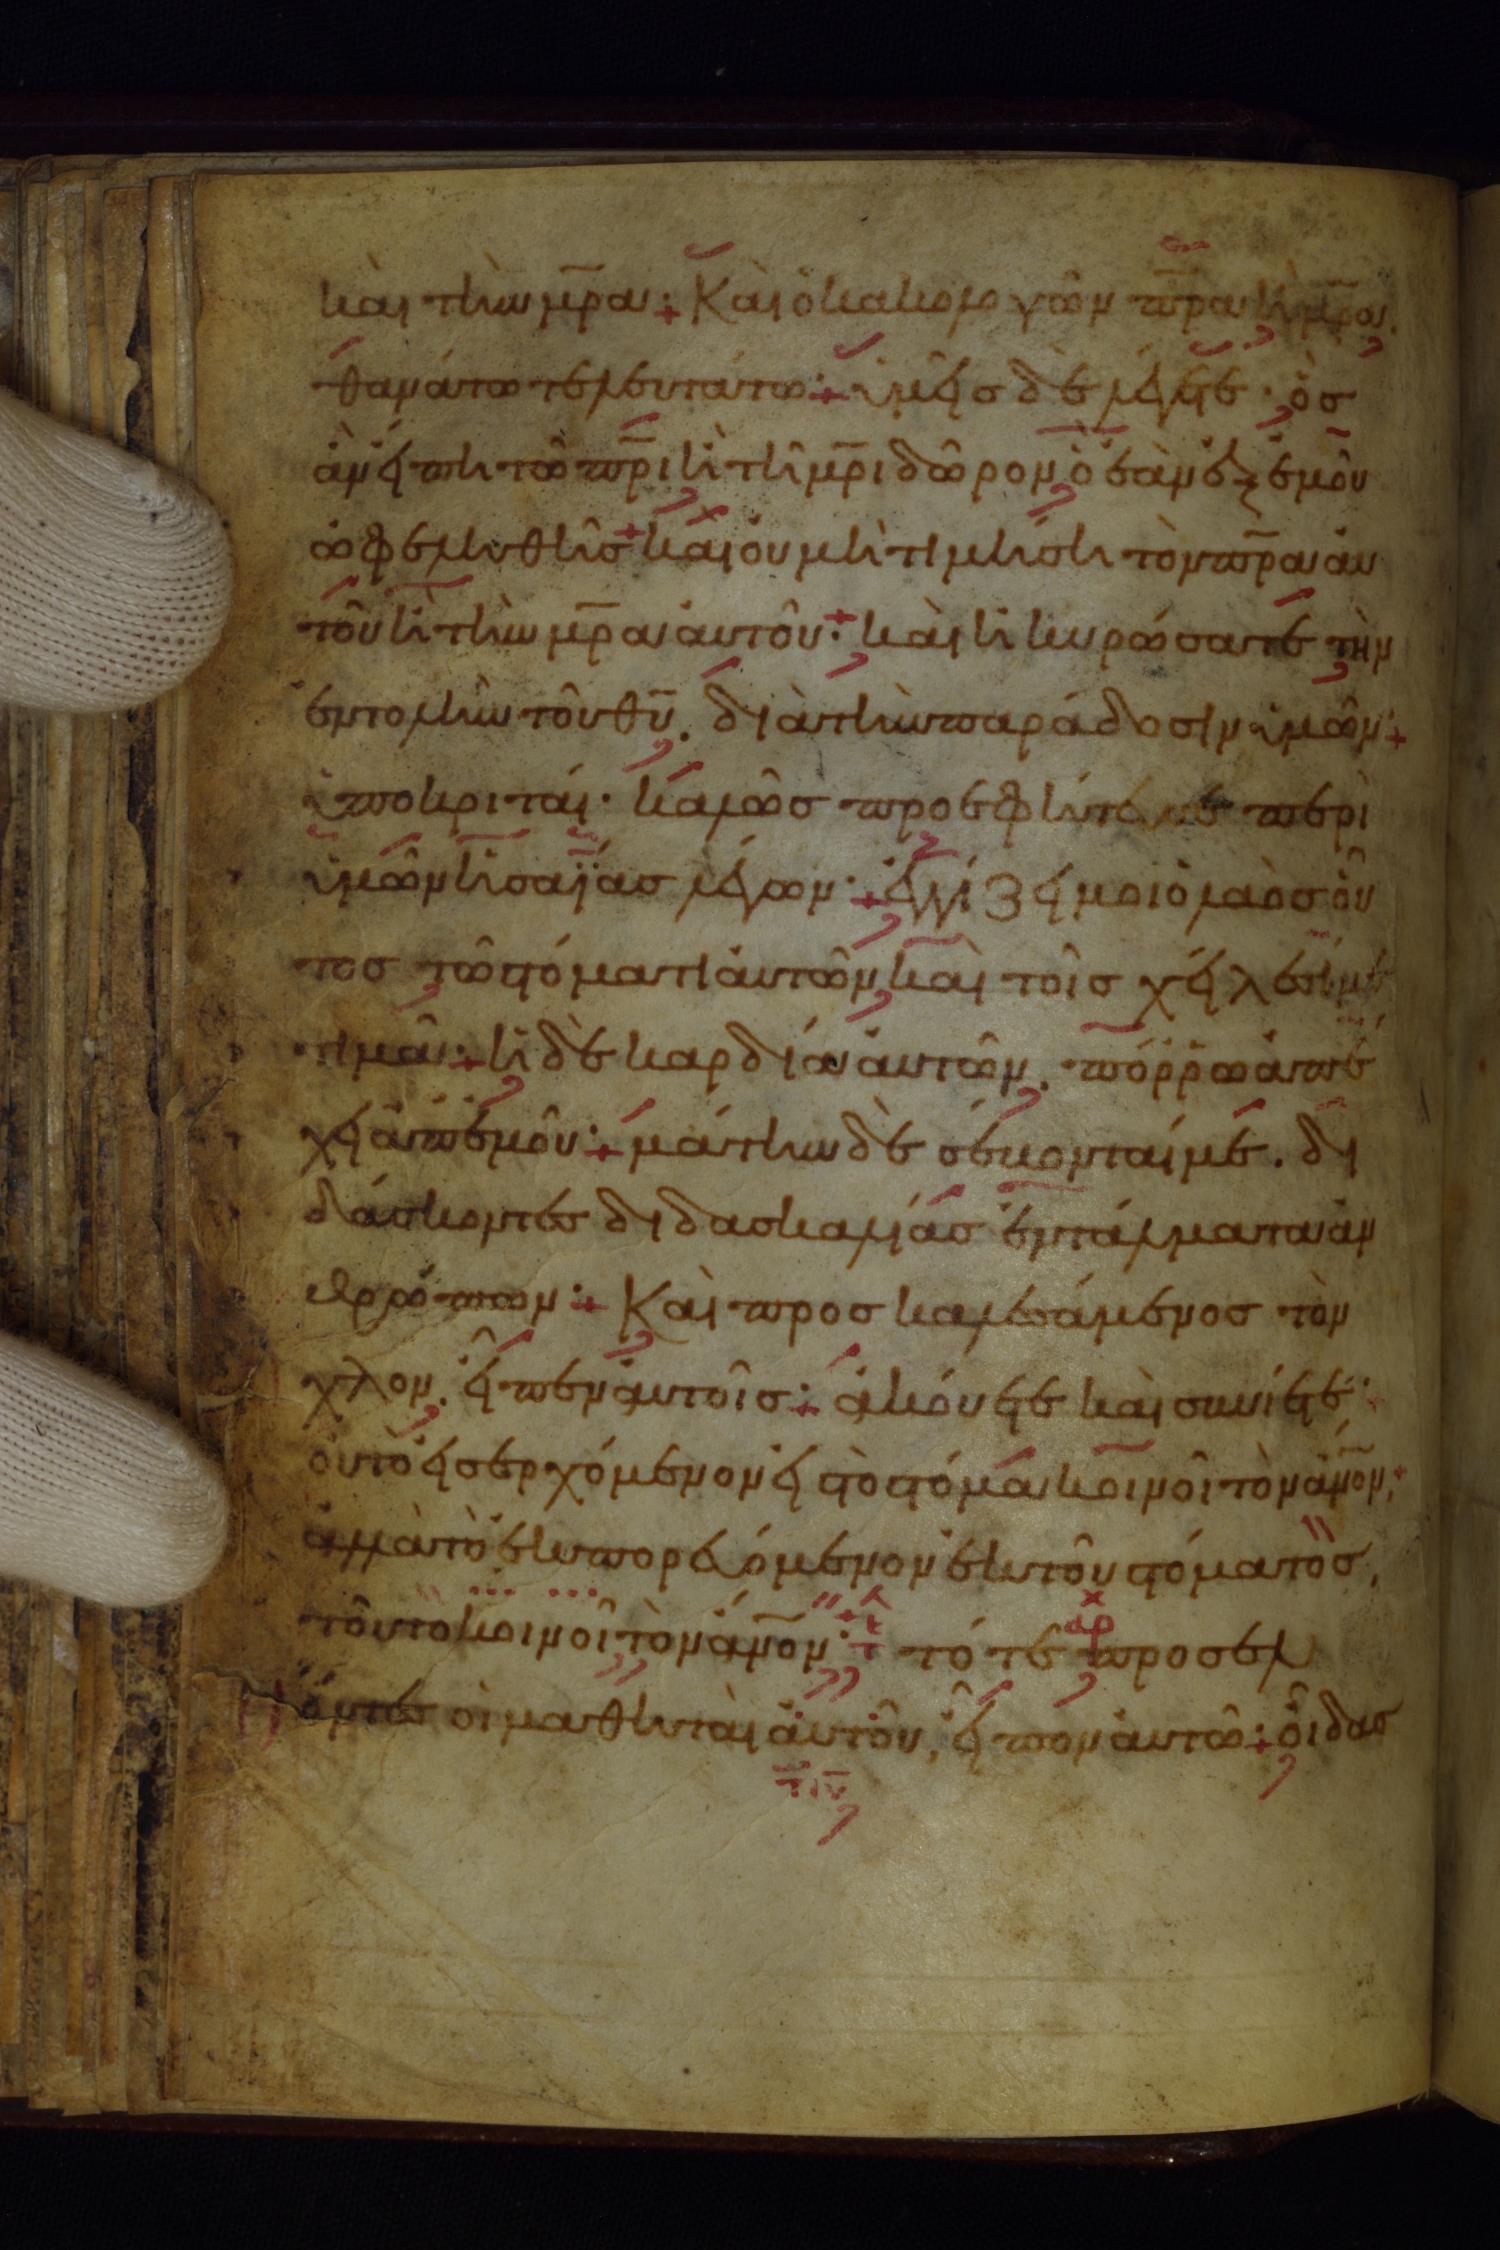 καὶ τὴν μ̅ρα· Καὶ ὁ κακολογῶν π̅ρα ἢ μ̅ρα.
θανάτω τελευτάτω· ὑμεῖς δὲ λέγετε· ὃς
ἂν εἴπη τῶ π̅ρι ἢ τῆ μ̅ρι δῶρον ὃ ἐὰν ἐξ ἐμοῦ
ὠφεληθῆς καὶ οὐ μὴ τιμήση τὸν π̅ρα αὐ
τοῦ ἢ τὴν μ̅ρα αὐτοῦ· καὶ ἠκυρώσατε τὴν
ἐντολὴν τοῦ θ̅υ. διὰ τὴν παράδοσιν ὑμῶν·
ὑποκριταί· καλῶς προεφήτευσε περὶ
ὑμῶν ἡσαΐας λέγων· ἐγγίζει μοι ὁ λαὸς οὗ
τος τῶ στόματι αὐτῶν καὶ τοῖς χείλεσί με
τιμᾶ· ἡ δὲ καρδία αὐτῶν. πόρρω ἀπέ
χει ἀπ' ἐμοῦ· μάτην δὲ σέβονταί με. δι
δάσκοντες διδασκαλίας ἐντάλματα ἀν
θρώπων· Καὶ προσκαλεσάμενος τὸν
χλον. εἶπεν αὐτοῖς· ἀκούετε καὶ συνίετε·
οὐ τὸ εἰσερχόμενον εἰς τὸ στόμα κοινοῖ τὸν ἄν̅ον,
ἀλλὰ τὸ ἐκπορευόμενον ἐκ τοῦ στόματος,
τοῦτο κοινοῖ τὸν ἄν̅ον· τότε προσελ
όντες οἱ μαθηταὶ αὐτοῦ, εἶπον αὐτῶ· οἶδας